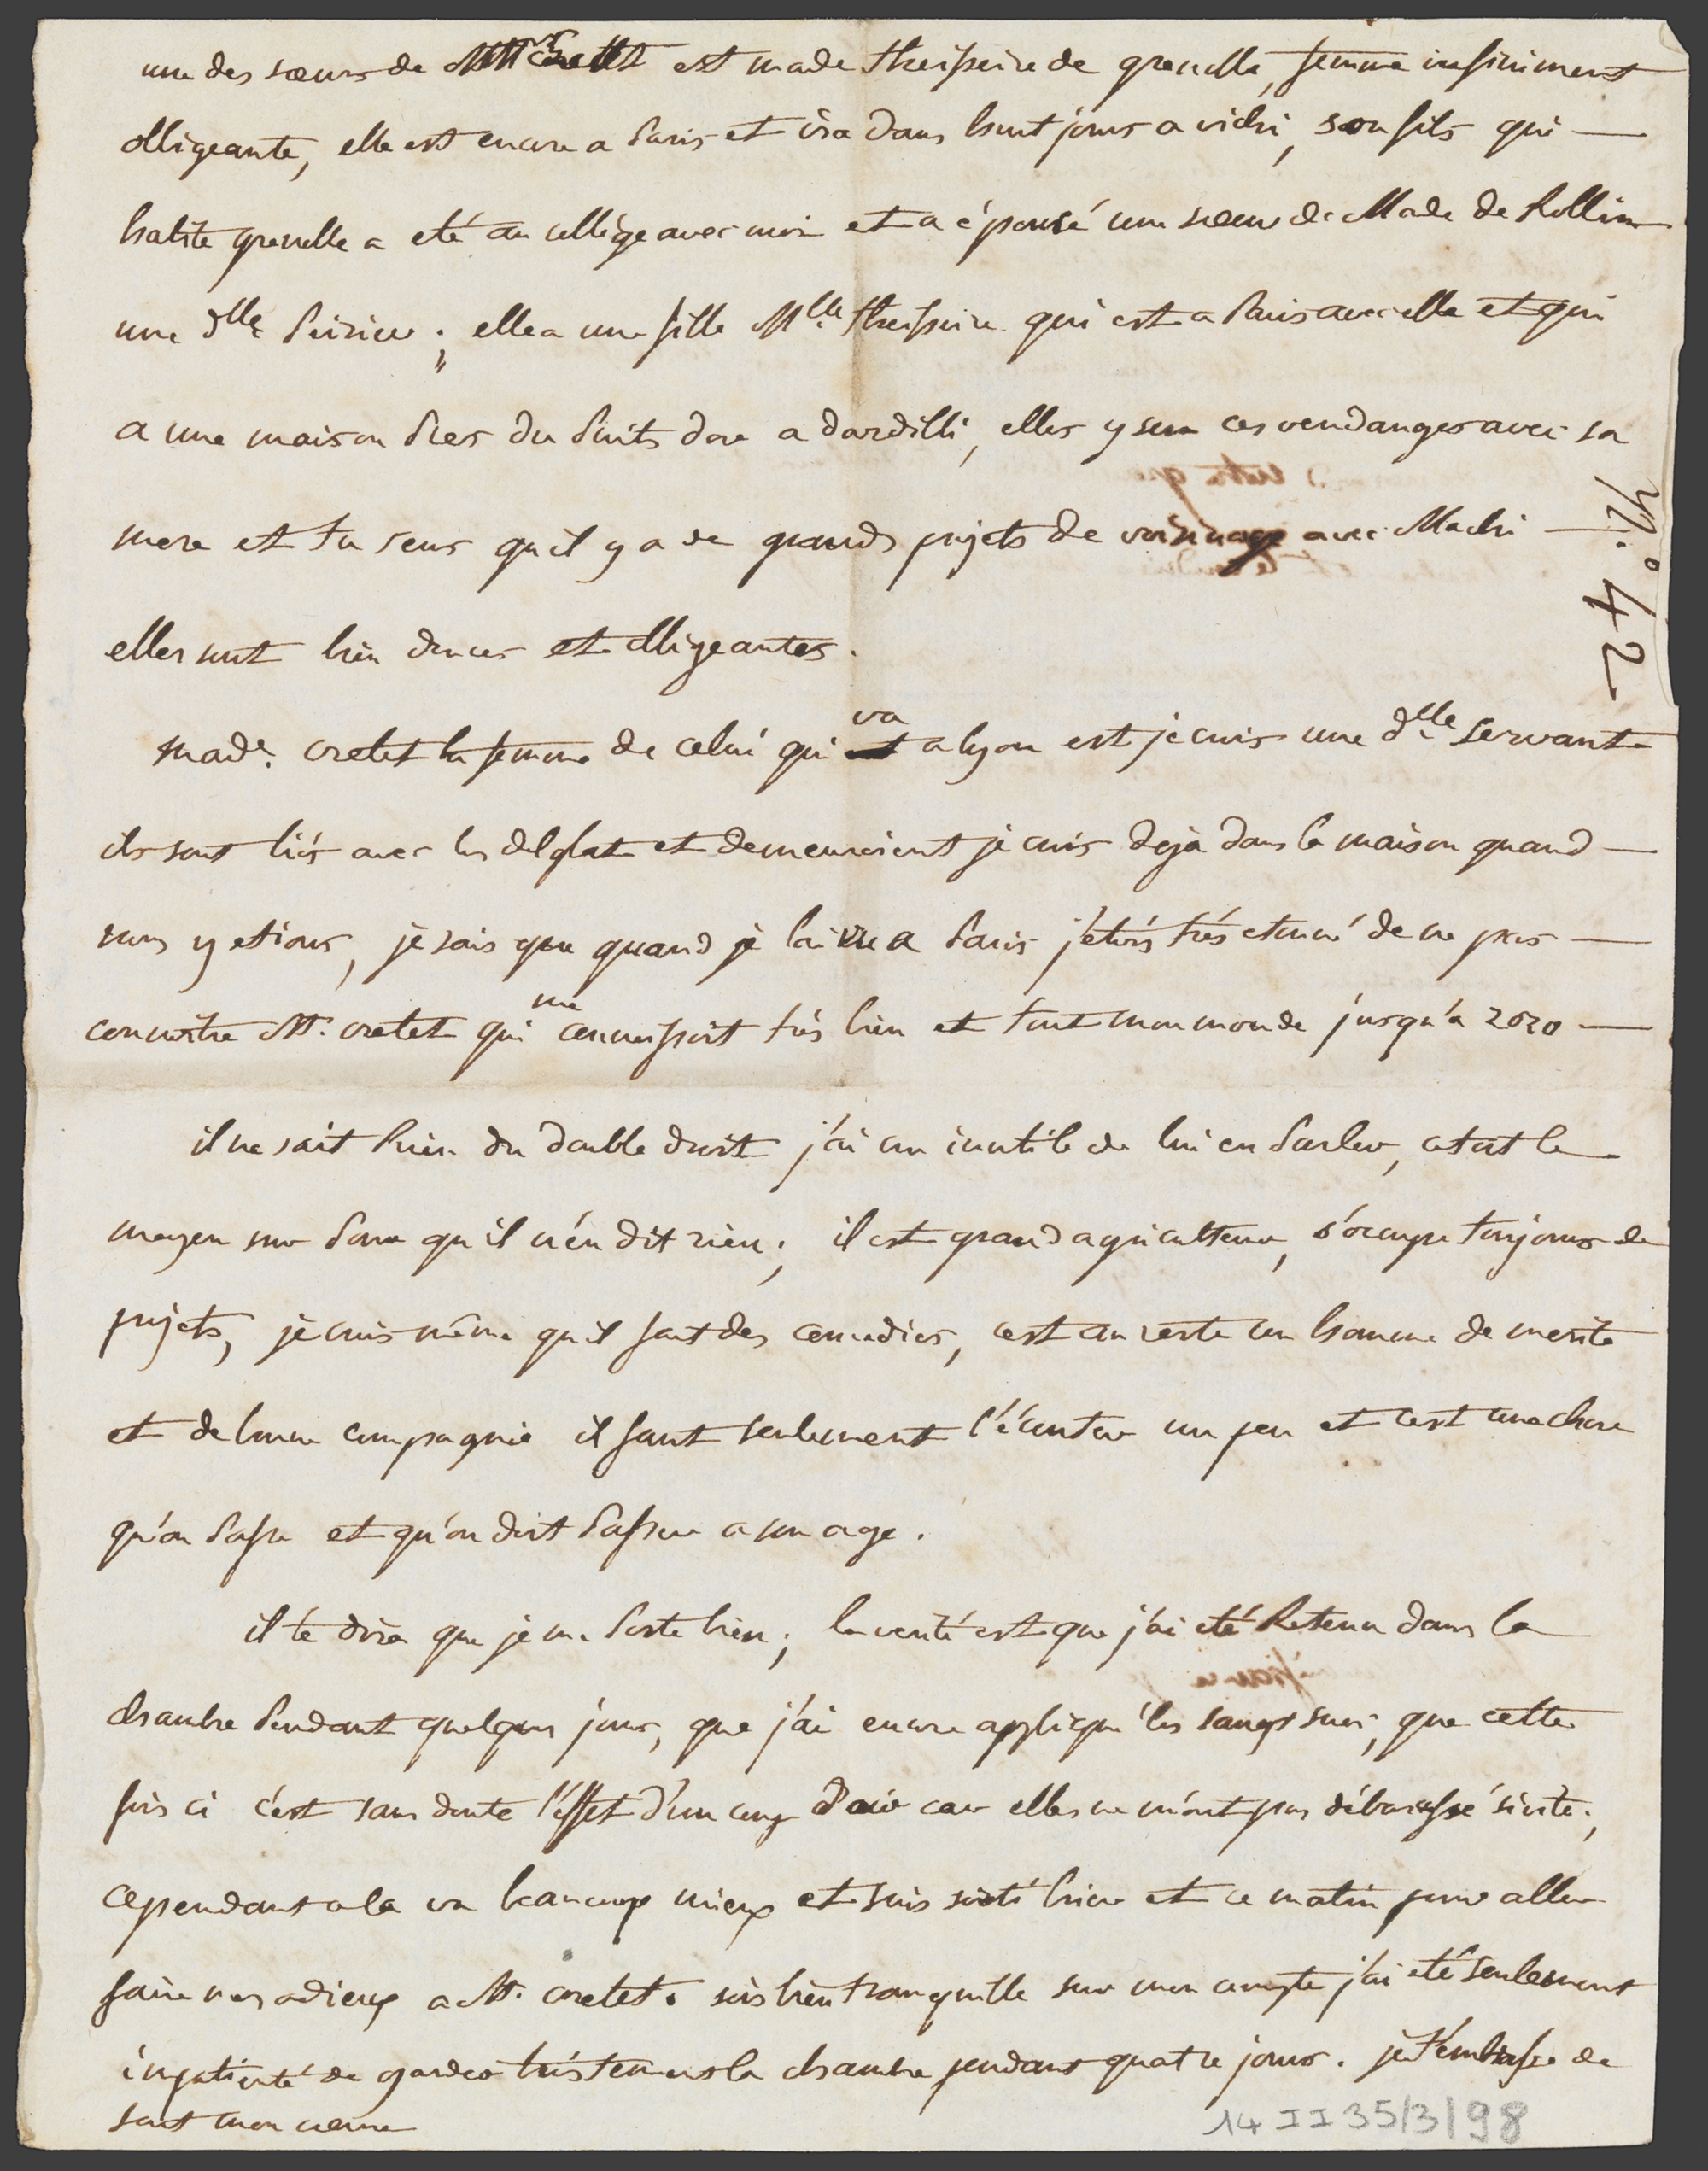 une des sœurs de M Cretet est made theisseire de grenelle, femme infiniment
obligeante, elle est encore a Paris et ira dans huit jours a vichi, son fils qui —
habite grenelle a eté au collége avec moi et a épousé une sœur de Made de Rollin
une dlle Perier ; elle a une fille Mlle theisseire qui est a Paris avec elle et qui
a une maison Pres du Puits dor a dardilli, elles y sera ces vendanges avec sa
mere et tu sens qu'il y a de grands projets de voisinage avec Machi —
elles sont bien douces et obligeantes.
made. cretet la femme de celui qui va a lyon est je crois une dlle servant
ils sont liés avec les delglat et demeuroient je crois deja dans la maison quand —
nous y etions, je sais que quand je l'ai vu a Paris j'etois très etonné de ne pas —
connoitre M. cretet qui me connoissoit très bien et tout mon monde jusqu'a zozo —
il ne sait Rien du double droit j'ai cru inutile de lui en Parler, cetoit le
moyen sur Pour qu'il n'en dit rien ; il est grand agriculteur, s'occupe toujours de
projets, je crois même qu'il fait des comedies, c'est au reste un homme de merite
et de bonne compagnie il faut seulement l'écouter un peu et c'est une chose
qu'on Passe et qu'on doit Passer a son age.
il te dira que je me Porte bien ; la verité est que j'ai eté Retenu dans la
chambre Pendant quelques jours, que j'ai encore appliqué les sangsues, que cette
fois ci c'est sans doute l'effet d'un coup d'air car elles ne m'ont pas débarassé si vite ;
cependant cela va beaucoup mieux et suis sorti hier et ce matin pour aller
faire mes adieux a M. cretet. sois bien tranquille sur mon compte j'ai eté seulement
impatienté de garder tristement la chambre pendant quatre jours. je t'embrasse de
tout mon cœur
N.º 42
14 II 35/3/98